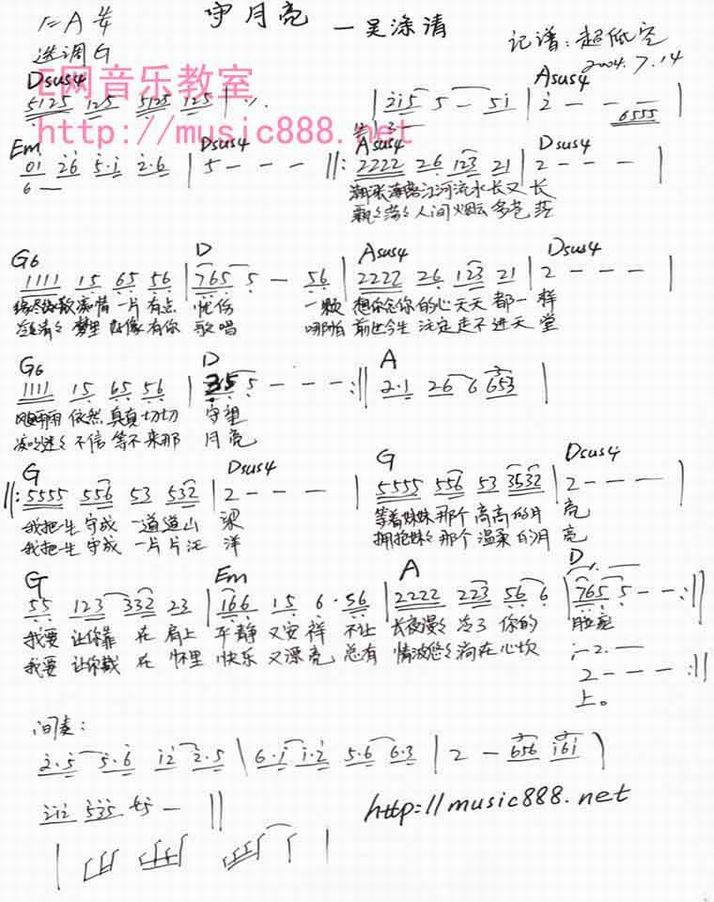 1=A 4/4 守月亮 —吴涤清
选调G 记谱：超低空
2004.7.14
Dsus4 E网音乐教室 Asus4
5125 125 5125 125 | ٪ | 215 5 — 51 | 2 — — — 6555 |
http://music888.net
Em Dsus4 Asus4 Dsus4
01 26 5·1 2·6 | 5 — — — ‖: 2222 26 123 21 | 2 — — — |
6 —
潮涨潮落江河流水长又长
人间烟云多苍茫
G6 D Asus4 Dsus4
1111 15 65 56 | 765 5 — 56 | 2222 26 123 21 | 2 — — — |
痴情一片有点忧伤 一颗想你念你的心天天都一样
梦里好像有你歌唱 哪怕前世今生注定走不进天堂
G6 D A
1111 15 65 56 | 35 5 — — — :‖ 2·1 26 6 653 |
依然真真切切守望
不信等不来那月亮
G Dsus4 G Dsus4
‖: 5555 556 53 532 | 2 — — — | 5555 556 53 3532 | 2 — — — |
我把一生守成一道道山梁 等着妹妹那个高高的月亮
我把一生守成一片片汪洋 拥抱妹妹那个温柔的月亮
G Em A D
55 123 332 23 | 166 15 6·56 | 2222 223 56 6 | 765 5 — — :‖
我要让你靠在肩上平静又安祥 不让长夜漫漫冷了你的脸庞
我要让你藏在怀里快乐又漂亮 总有情波悠悠淌在心坎
2 — — — :‖
上。
间奏：
2·5 5·6 12 2·5 | 6·1 1·2 5·6 6·3 | 2 — 656 161 |
212 535 45 — ‖
http://music888.net